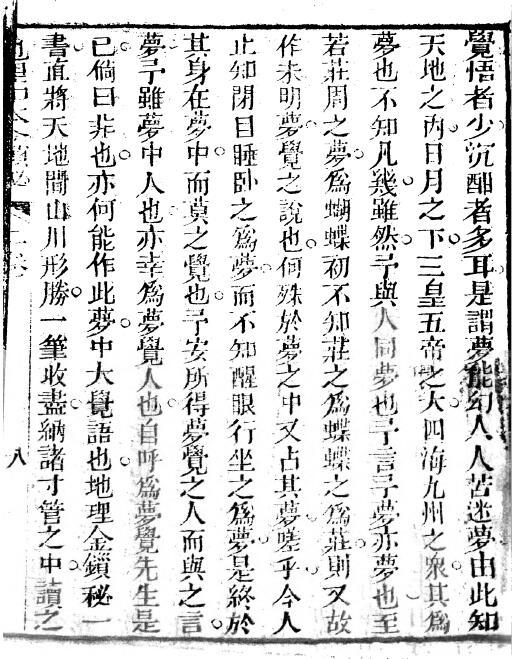 覺悟者少沉酣者多耳是謂夢能幻人人苦迷夢由此知
天地之內日月之下三皇五帝之大四海九州之衆其爲
夢也不知凡幾雖然予與人同夢也予言子夢亦夢也至
若莊周之夢爲蝴蝶初不知莊之爲蝶蝶之爲莊則又故
作未明夢覺之說也何殊於夢之中又占其夢嗟乎今人
止知閉目睡卧之爲夢而不知醒眼行坐之爲夢是終於
其身在夢中而莫之覺也予安所得夢覺之人而與之言
夢予雖夢中人也亦幸爲夢覺人也自呼爲夢覺先生是
已倘曰非也亦何能作此夢中大覺語也地理金鎖秘一
書直將天地間山川形勝一筆收盡納諸寸管之中讀之
八